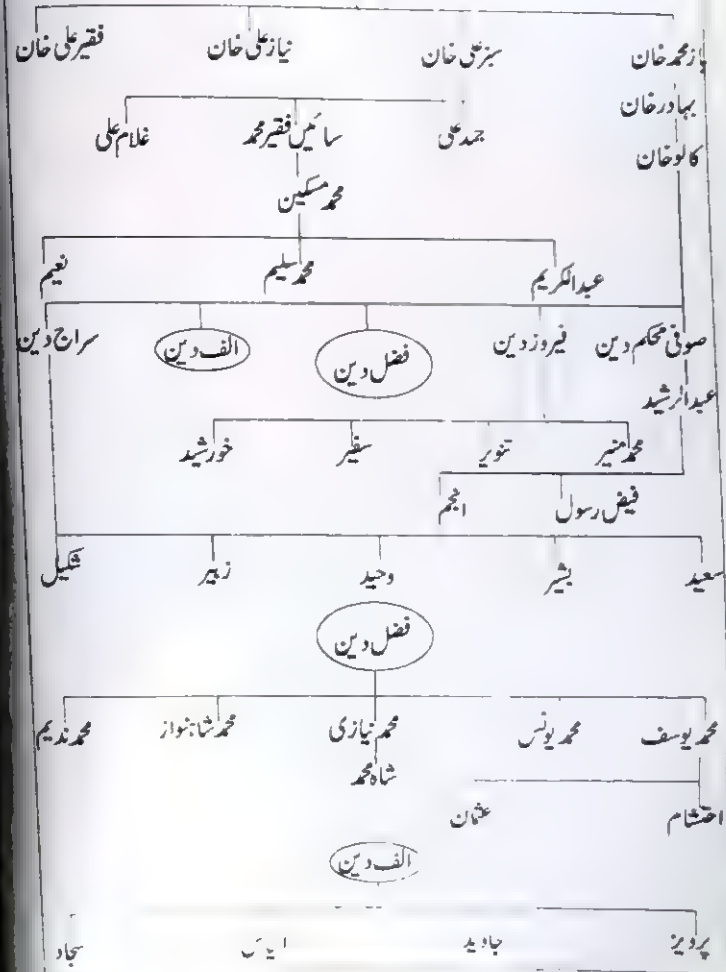 باز محمد خان سبز علی خان نیاز علی خان فقیر علی خان
بہادر خان
جمد علی سائیں فقیر محمد غلام علی
کالو خان
محمد مسکین
عبدالکریم محمد سلیم نعیم
صوفی محکم دین فیروز دین فضل دین الف دین سراج دین
عبدالرشید
محمد منیر تنویر سفیر خورشید
فیض رسول انجم
سعید بشیر وحید زبیر شکیل
فضل دین
محمد یوسف محمد یونس محمد نیازی محمد شاہنواز محمد ندیم
شاہ محمد
احتشام عثمان
الف دین
پرویز جاوید سجاد